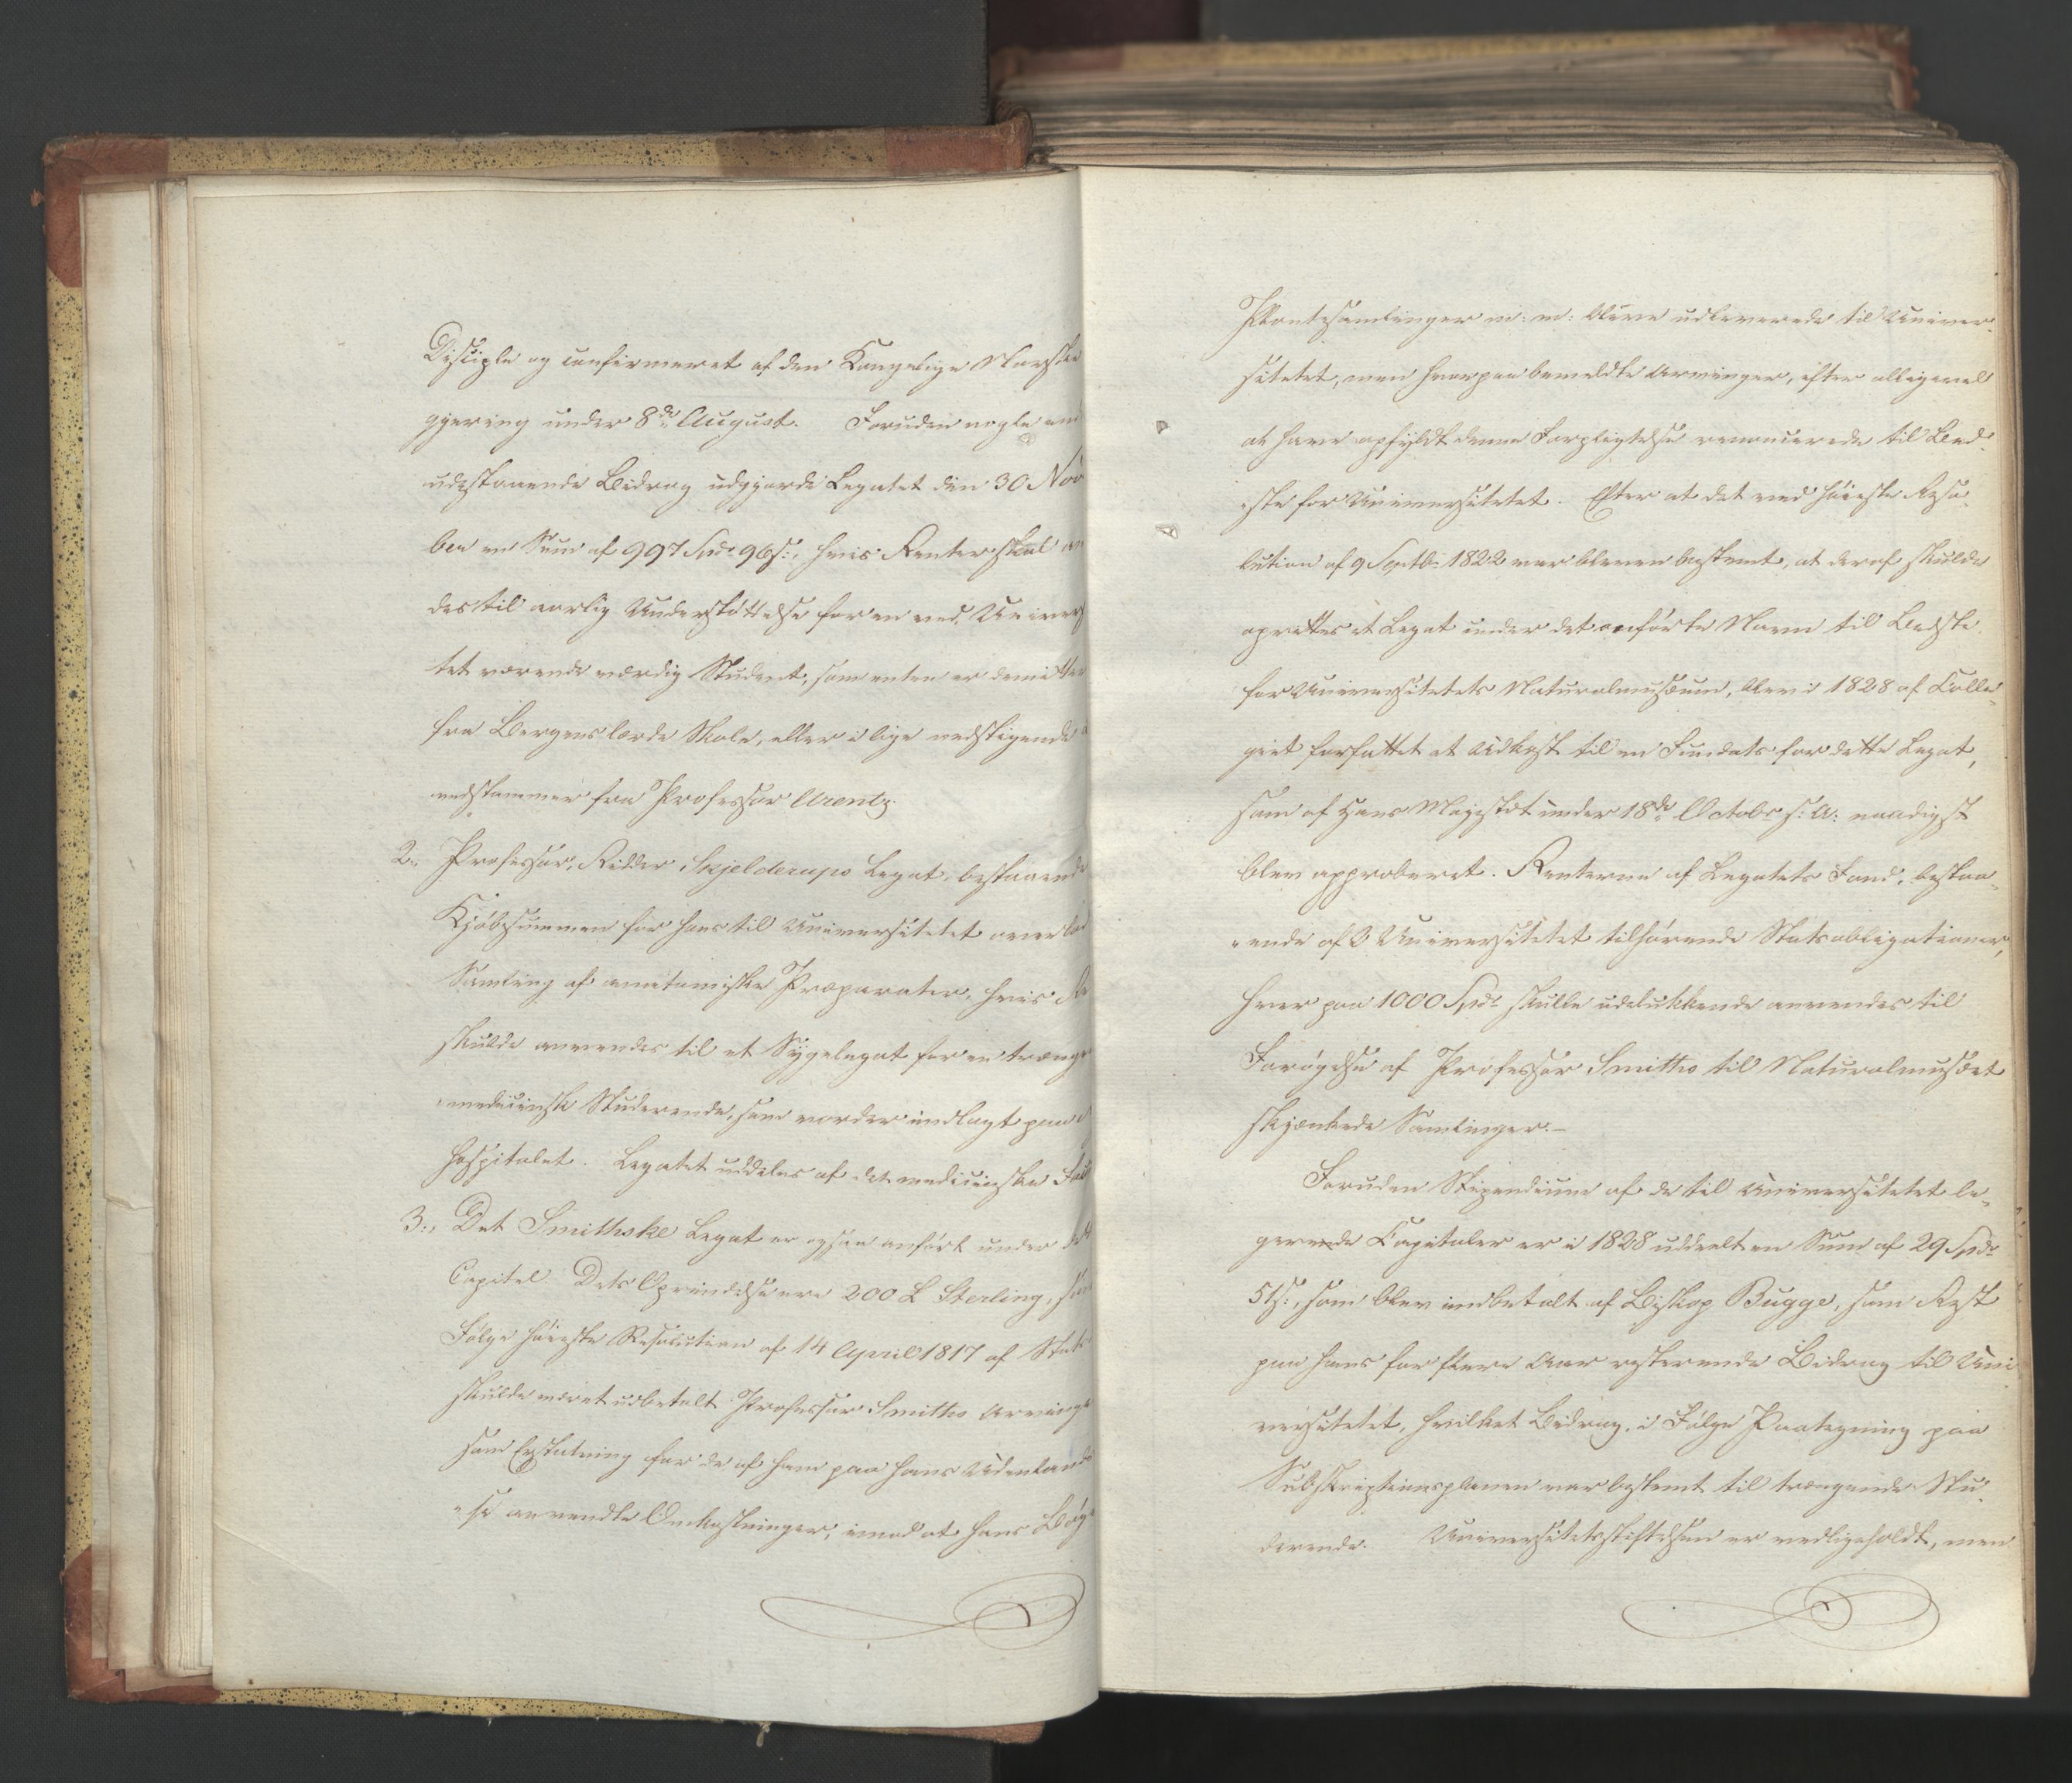 Disciple og confirmeret af den Kongelige Norske
gjering under 8de August. Foruden nogle end
udestaaende Bidrag udgjorde Legatet den 30 Nov
ber en Sum af 997 Spdr 96 s:, hvis Renter skal an
des til aarlig Understøttelse for en ved Univers
tet værende værdig Student, som enten er demitter
fra Bergens lærde Skole, eller i lige nedstigende
nedstammer fra Professor Arentz.
2., Professor, Ridder Skjelderups Legat, bestaaende
Kjøbsummen for hans til Universitetet overlad
Samling af anatomiske Præparater, hvis Re
skulde anvendes til et Sygelegat for en trænge
medicinsk Studerende, som vorder indlagt paa
Hospitalet. Legatet uddeles af det medicinske Fac
3:, Det Smithske Legat er ogsaa anført under
Capitel. Dets Oprindelse ere 200 £ Sterling, som
Følge høieste Resolution af 14 April 1817 af Stats
skulde været udbetalt Professor Smiths Arvinge
som Erstatning for de af ham paa hans Udenlands
se anvendte Omkostninger, imod at hans Bøge
Plantesamlinger m: m: bleve udleverede til Univer-
sitetet, men hvorpaa bemeldte Arvinger, efter alligevel
at have opfyldt denne Forpligtelse renoncerede til Bed-
ste for Universitetet. Efter at det ved høieste Reso-
lution af 9 Septbr 1822 var bleven bestemt, at deraf skulde
oprettes et Legat under det anførte Navn til Bedste
for Universitetets Naturalmusæum, blev i 1828 af Colle-
giet forfattet et Udkast til en Fundats for dette Legat,
som af Hans Majestæt under 18de Octobr s: A: naadigst
blev approberet. Renterne af Legatets Fond, bestaa-
ende af 3 Universitetet tilhørende Statsobligationer,
hver paa 1000 Spdr skulle udelukkende anvendes til
Forøgelse af Professor Smiths til Naturalmusæet
skjænkede Samlinger.-
Foruden Stipendium af de til Universitetet le-
gerede Capitaler er i 1828 uddeelt en Sum af 29 Spdr
51 s:, som blev indbetalt af Biskop Bugge, som Rest
paa hans for flere Aar resterende Bidrag til Uni
versitetet, hvilket Bidrag, i Følge Paategning paa
Subskriptionsplanen var bestemt til trængende Stu-
derende. Universitetsstiftelsen er vedligeholdt, men